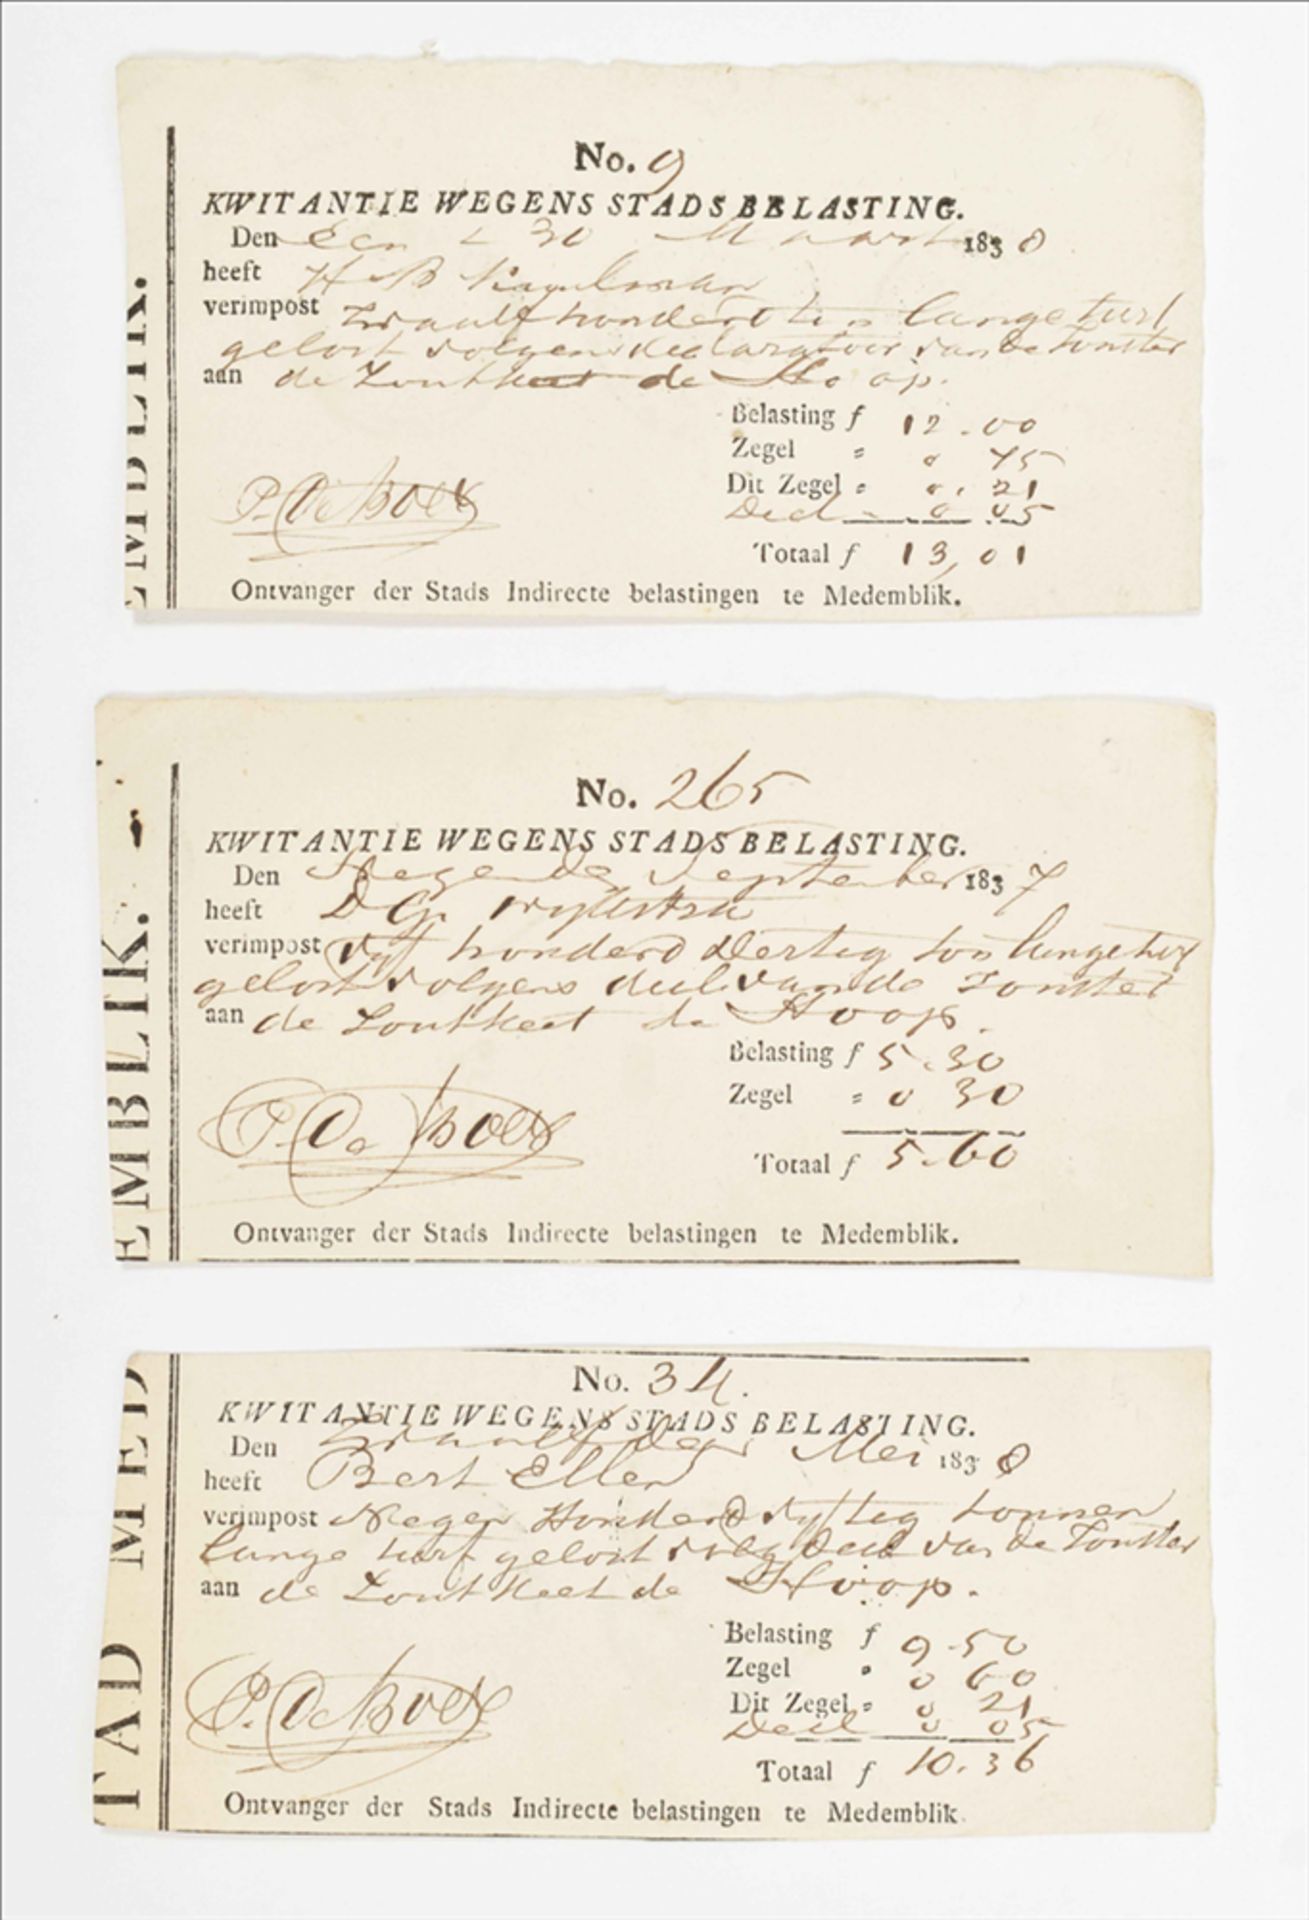 No. 9
KWITANTIE WEGENS STADS BELASTING.
Den Een & 30 Maart 1838
heeft H B
verimpost Twaalf honderd ton lange turf
gelost volgens declaratoir van de Zonster
aan de Zoutkeet de Hoop.
Belasting f 12.00
Zegel " 0 75
Dit Zegel " 0.21
Decl 0 05
Totaal f 13,01
P. De Boer
Ontvanger der Stads Indirecte belastingen te Medemblik.
EMBLIK.
No. 265
KWITANTIE WEGENS STADS BELASTING.
Den Negende September 1837
heeft D G Wijlstra
verimpost Vyf honderd dertig ton lange turf
gelost volgens decl van de Zonster
aan de Zoutkeet de Hoop.
Belasting f 5.30
Zegel " 0 30
Totaal f 5.60
P. De Boer
Ontvanger der Stads Indirecte belastingen te Medemblik.
EMBLIK.
No. 34.
KWITANTIE WEGENS STADS BELASTING.
Den Twaalfden Mei 1838
heeft Bert Ellen
verimpost Negen Honderd vyftig tonnen
lange turf gelost volg decl van de Zonster
aan de Zoutkeet de Hoop.
Belasting f 9.50
Zegel " 0 60
Dit Zegel " 0 21
Decl 0 05
Totaal f 10.36
P. De Boer
Ontvanger der Stads Indirecte belastingen te Medemblik.
TAD MED